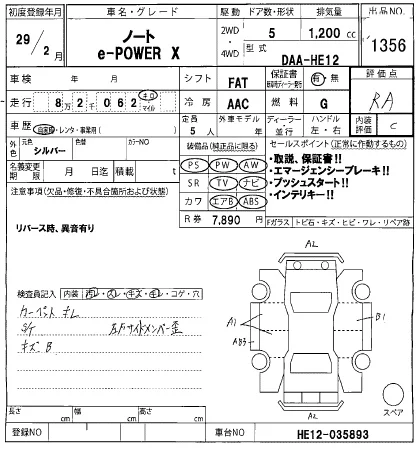 初度登録年月 車名・グレード 駆動 ドア数・形状 排気量 出品NO.
29年 2月 ノート e-POWER X 2WD・4WD 5 1,200 cc 1356
型式 DAA-HE12
車検 年 月 シフト FAT 保証書 有・無 評価点
走行 8万2千062 km マイル 冷房 AAC 燃料 G RA
車歴 自家用・レンタ・事業用( ) 定員 5人 外車モデル 年 ディーラー・並行 ハンドル 左・右 内装評価 C
外色 元色 シルバー 色替 カラーNO 装備品(純正品に限る) セールスポイント(正常に作動するもの)
名義変更期限 月 日迄 積載 t PS PW AW ・取説、保証書!!
注意事項(欠品・修復・不具合箇所および状態) SR TV ナビ ・エマージェンシーブレーキ!!
カワ エアB ABS ・プッシュスタート!!
・インテリキー!!
リバース時、異音有り R券 7,890円 Fガラス トビ石・キズ・ヒビ・ワレ・リペア跡
A2
検査員記入 内装 汚レ・スレ・キズ・キレ・コゲ・穴
カーペットキレ A1 B1
S/T 左Fサイドメンバー歪 AB3
キズB
スペア
A2
長さ cm 幅 cm 高さ cm
登録NO 車台NO HE12-035893